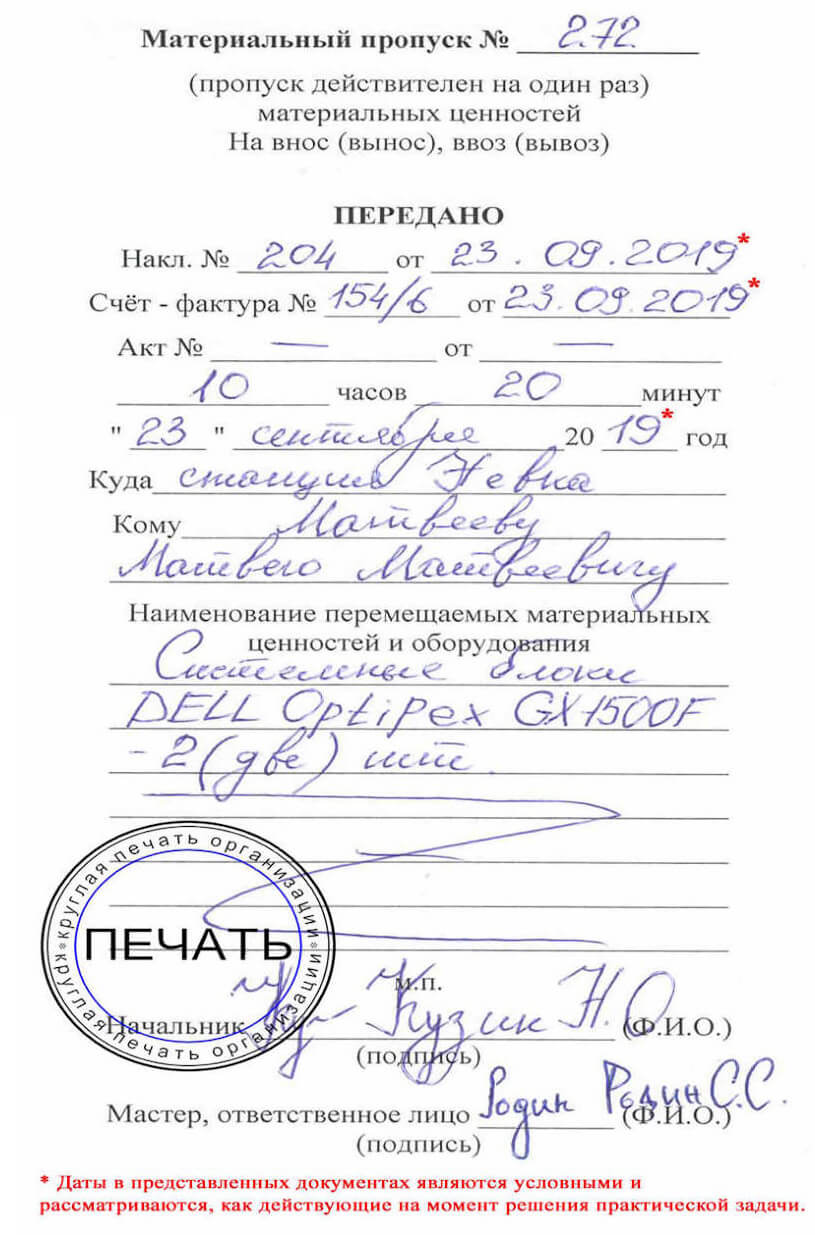 Материальный пропуск № 272
(пропуск действителен на один раз)
материальных ценностей
На внос (вынос), ввоз (вывоз)
ПЕРЕДАНО
Накл. № 204 от 23.09.2019*
Счёт - фактура № 154/6 от 23.09.2019*
Акт № — от —
10 часов 20 минут
" 23 " сентября 20 19* год
Куда станция Невка
Кому Матвееву
Матвею Матвеевичу
Наименование перемещаемых материальных
ценностей и оборудования
Системные блоки
DELL OptiPex GX1500F
- 2 (две) шт.
круглая печать организации * круглая печать организации *
ПЕЧАТЬ
м.п.
Начальник Кузик Н.О (Ф.И.О.)
(подпись)
Мастер, ответственное лицо Родин Родин С.С. (Ф.И.О.)
(подпись)
* Даты в представленных документах являются условными и
рассматриваются, как действующие на момент решения практической задачи.